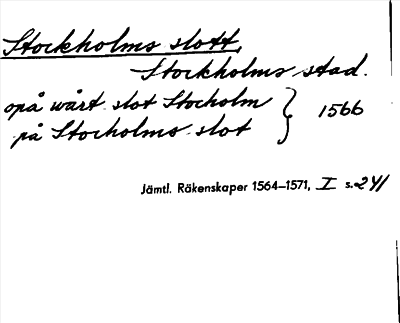 Stockholms slott,
Stockholms stad.
opå wårt slot Stocholm } 1566
på Stocholms slot
Jämtl. Räkenskaper 1564–1571, I s. 241